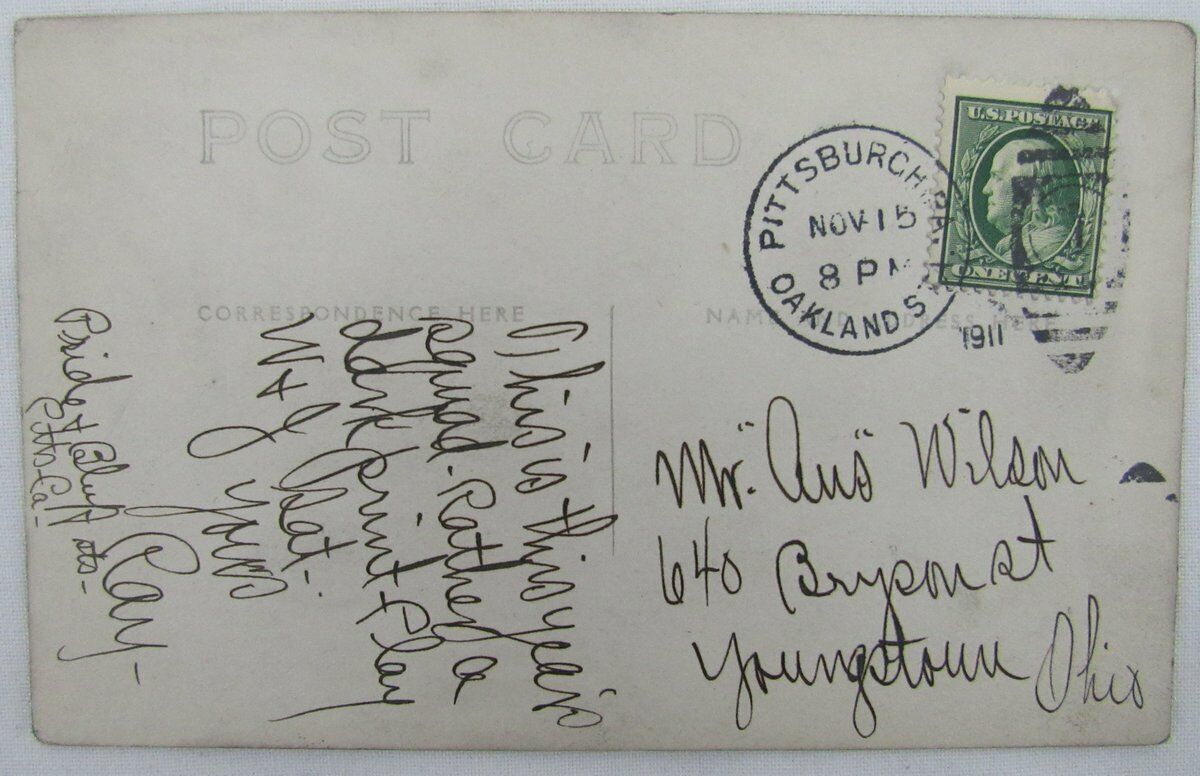 POST CARD
PITTSBURGH, PA.
NOV 15
8 PM
OAKLAND STA.
1911
U.S. POSTAGE
ONE CENT
CORRESPONDENCE HERE
NAME AND ADDRESS HERE
This is this year's
squad. Rather a
dark print. Play
W & J Sat.
Yours
Ray-
Pride & Bluff sts-
Pitts Pa-
Mr. "Aus" Wilson
640 Bryson st
Youngstown Ohio